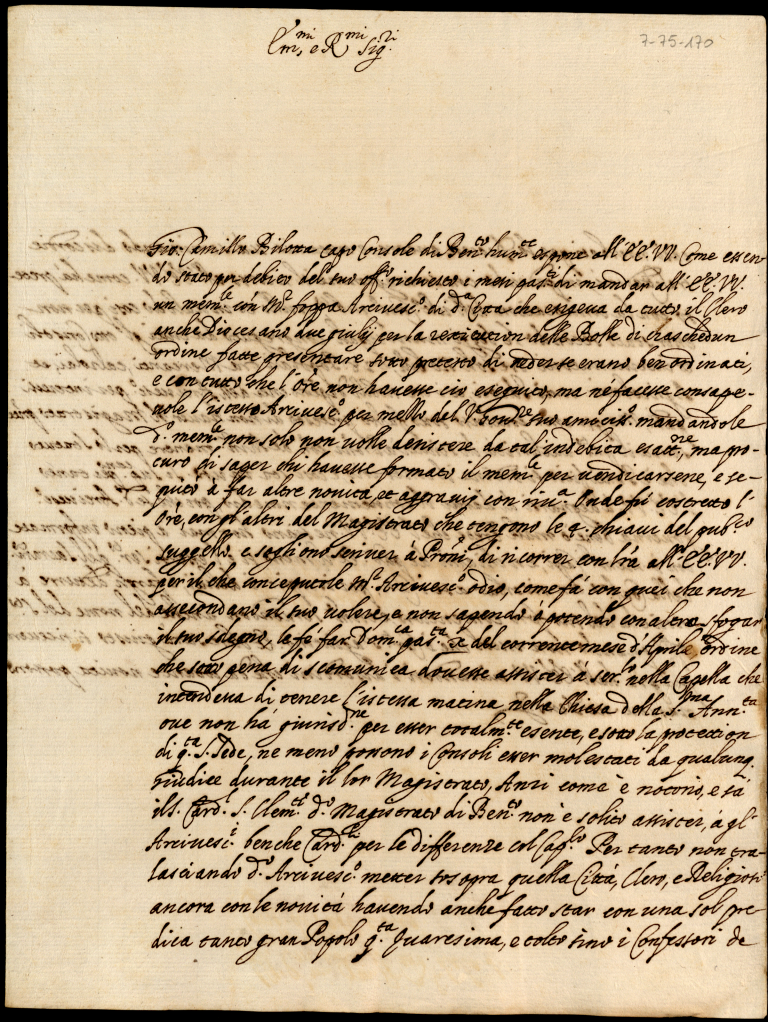 7-75-170
Em.mi e R.mi Sig.ri
Gio: Camillo Bilotta capo Console di Ben.to hum.te espone all'EE. VV. Come essen-
do stato per debito del suo off.o richiesto i mesi pas.ti di mandar all'EE. VV.
un mem.le con M.r Foppa Arcivesc.o di d.a Città che esigeva da tutto il Clero
anche Diocesano due giulij per la delle Bolle di ciaschedun
ordine fatte presentare sotto pretesto di veder se erano ben ordinati,
e con tutto che l'Ore non havesse ciò eseguito, ma né facesse consape-
vole l'istesso Arcivesc.o per mezzo del V. suo mandandole
d.o mem.le non solo non volle desistere da tal'indebita esatt.ne, ma pro-
curò di saper chi havesse formato il mem.le per vendicarsene, e se-
guitò à far altre novità, et aggravij con Onde fù costretto l'
Ore, con gl'altri del Magistrato che tengono le 4. chiavi del pub.co
suggello, e sogliono scriver à Pröni, di ricorrer contrà all'EE. VV.
per il che concepitole M.r Arcivesc.o odio, come fà con quei che non
assecondano il suo volere, e non sapendo, ò potendo con altro sfogar
il suo sdegno, le fè far Dom.ca pas.ta del corrente mese d'Aprile ordine
che sotto pena di scomunica dovesse assister à ser.lo nella Capella che
intendeva di tenere l'istessa matina nella Chiesa della S.ma Ann.ta
ove non hà giurisd.ne per esser totalm.te esente, e sotto la protettion
di q.ta S. Sede, ne meno possono i Consoli esser molestati da qualunq.
Giudice durante il lor Magistrato, Anzi come è notorio, e sà
il S. Card. S. Clem.te d.o Magistrato di Ben.to non è solito assister, à gl'
Arcivesc.i benche Card.li per le differenze col Cap.lo Per tanto non tra-
lasciando d.o Arcivesc.o metter sosopra quella Città, Clero, e Religiosi
ancora con le novità havendo anche fatto star con una sol pre
dica tanto gran Popolo q.ta Quaresima, e tolto sino i Confessori de